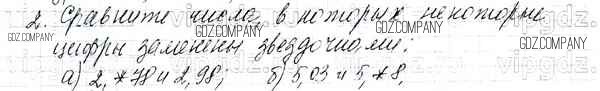 2. Сравните числа, в которых некоторые
цифры заменены звездочками:
а) 2,*78 и 2,98; б) 5,03 и 5,*8,
vipgdz.com
GDZ.COM
GDZ.COM
GDZ.COM
GDZ.COM